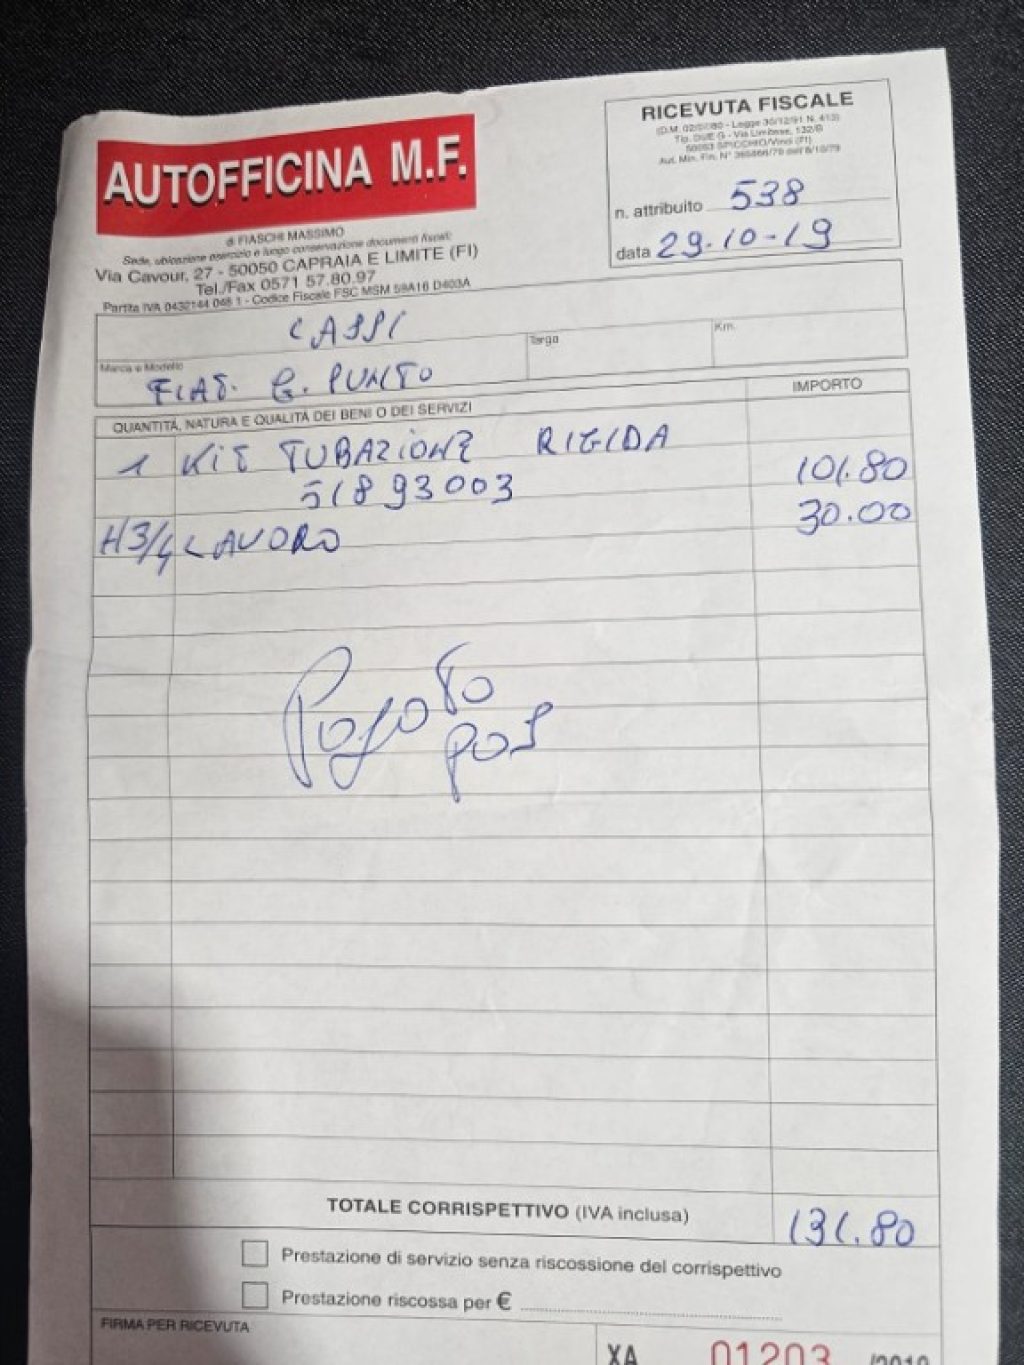 AUTOFFICINA M.F.
di FIASCHI MASSIMO
Sede, ubicazione esercizio e luogo conservazione documenti fiscali:
Via Cavour, 27 - 50050 CAPRAIA E LIMITE (FI)
Tel./Fax 0571 57.80.97
Partita IVA 0432144 048 1 - Codice Fiscale FSC MSM 59A16 D403A
RICEVUTA FISCALE
Tip. DUE G - Via Limitese, 132/B
50053 SPICCHIO/Vinci (FI)
n. attribuito 538
data 29-10-19
CAPPI
Marca e Modello
FIAT G. PUNTO
Targa
Km.
QUANTITÀ, NATURA E QUALITÀ DEI BENI O DEI SERVIZI
IMPORTO
1 KIT TUBAZIONE RIGIDA
51893003 101.80
H3/4 LAVORO 30.00
Pagato
pos
TOTALE CORRISPETTIVO (IVA inclusa) 131.80
Prestazione di servizio senza riscossione del corrispettivo
Prestazione riscossa per €
FIRMA PER RICEVUTA
XA 01203 /2019